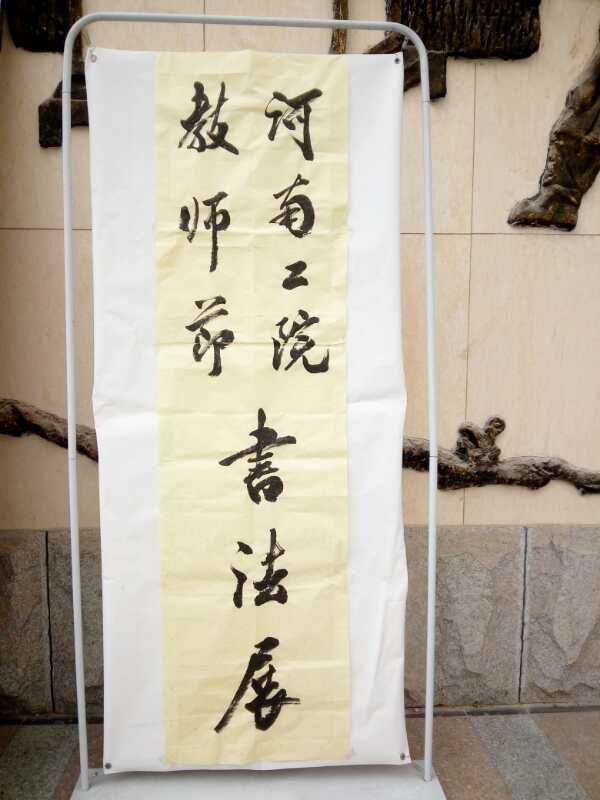 河南工院
教师节
書法展